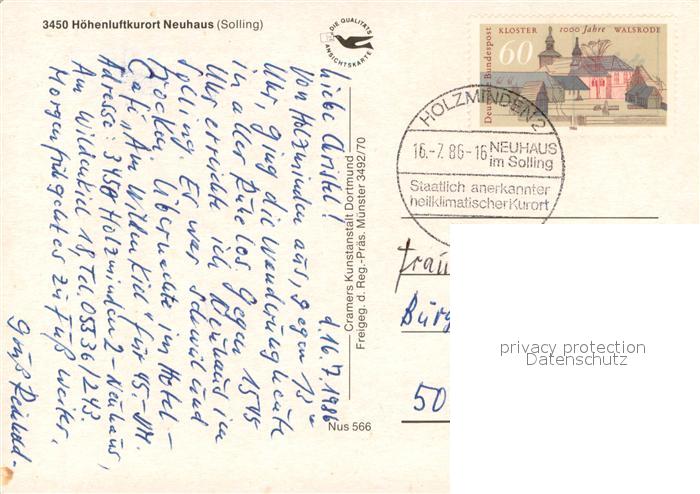 3450 Höhenluftkurort Neuhaus (Solling)
DIE QUALITÄTS
ANSICHTSKARTE
Deutsche Bundespost
KLOSTER 1000 Jahre WALSRODE
60
1986
HOLZMINDEN 2
16.-7.86-16
NEUHAUS
im Solling
Staatlich anerkannter
heilklimatischer Kurort
d. 16.7.1986
Liebe Christel!
Von Holzminden aus, gegen 13⁰⁰
Uhr, ging die Wanderung heute
in aller Ruhe los. Gegen 15⁴⁵
Uhr erreichte ich Neuhaus im
Solling. Es war schwül und
trocken. Übernachte im Hotel-
Café „Am Wildenkiel" für 45,-DM.
Adresse: 3450 Holzminden 2-Neuhaus,
Am Wildenkiel 18, Tel. 05536/243.
Morgen früh geht es zu Fuß weiter.
Gruß Reinhold.
Cramers Kunstanstalt Dortmund
Freigeg. d. Reg.-Präs. Münster 3492/70
Nus 566
Frau
Bürg
50
privacy protection
Datenschutz